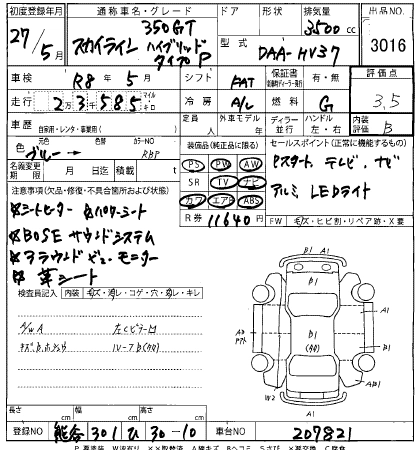 初度登録年月 通称車名・グレード ドア 形状 排気量 出品NO.
27/5月 スカイライン 350GT ハイブリッド タイプP 3500cc 3016
型式 DAA-HV37
車検 R8年5月 シフト FAT 保証書 有・無 評価点
走行 23,585 マイル キロ 冷房 A/C 燃料 G 3.5
車歴 自家用・レンタ・事業用( ) 定員 人 外車モデル 年 ディーラー 並行 ハンドル 左・右 内装評価 B
元色 色 カラーNO
ブルー RBP
装備品(純正品に限る) セールスポイント(正常に機能するもの)
名義変更期限 月 日迄 積載量 t
PS PW AW
SR TV ナビ
カワ エアB ABS
Pスタート テレビ、ナビ
アルミ LEDライト
注意事項(欠品・修復・不具合箇所および状態)
R券 11640円
FW キズ・ヒビ割・リペア跡・X要
※シートヒーター ※パワーシート
※BOSEサウンドシステム
※アラウンドビューモニター
※革シート
検査員記入 内装 キズ・汚レ・コゲ・穴・濁レ・キレ
A/W A
長さ cm 幅 cm 高さ cm
登録NO 熊谷 301 ひ 30-10 車台NO 207821
A1
B1
A1
B1
A1
AB1
W2
A1